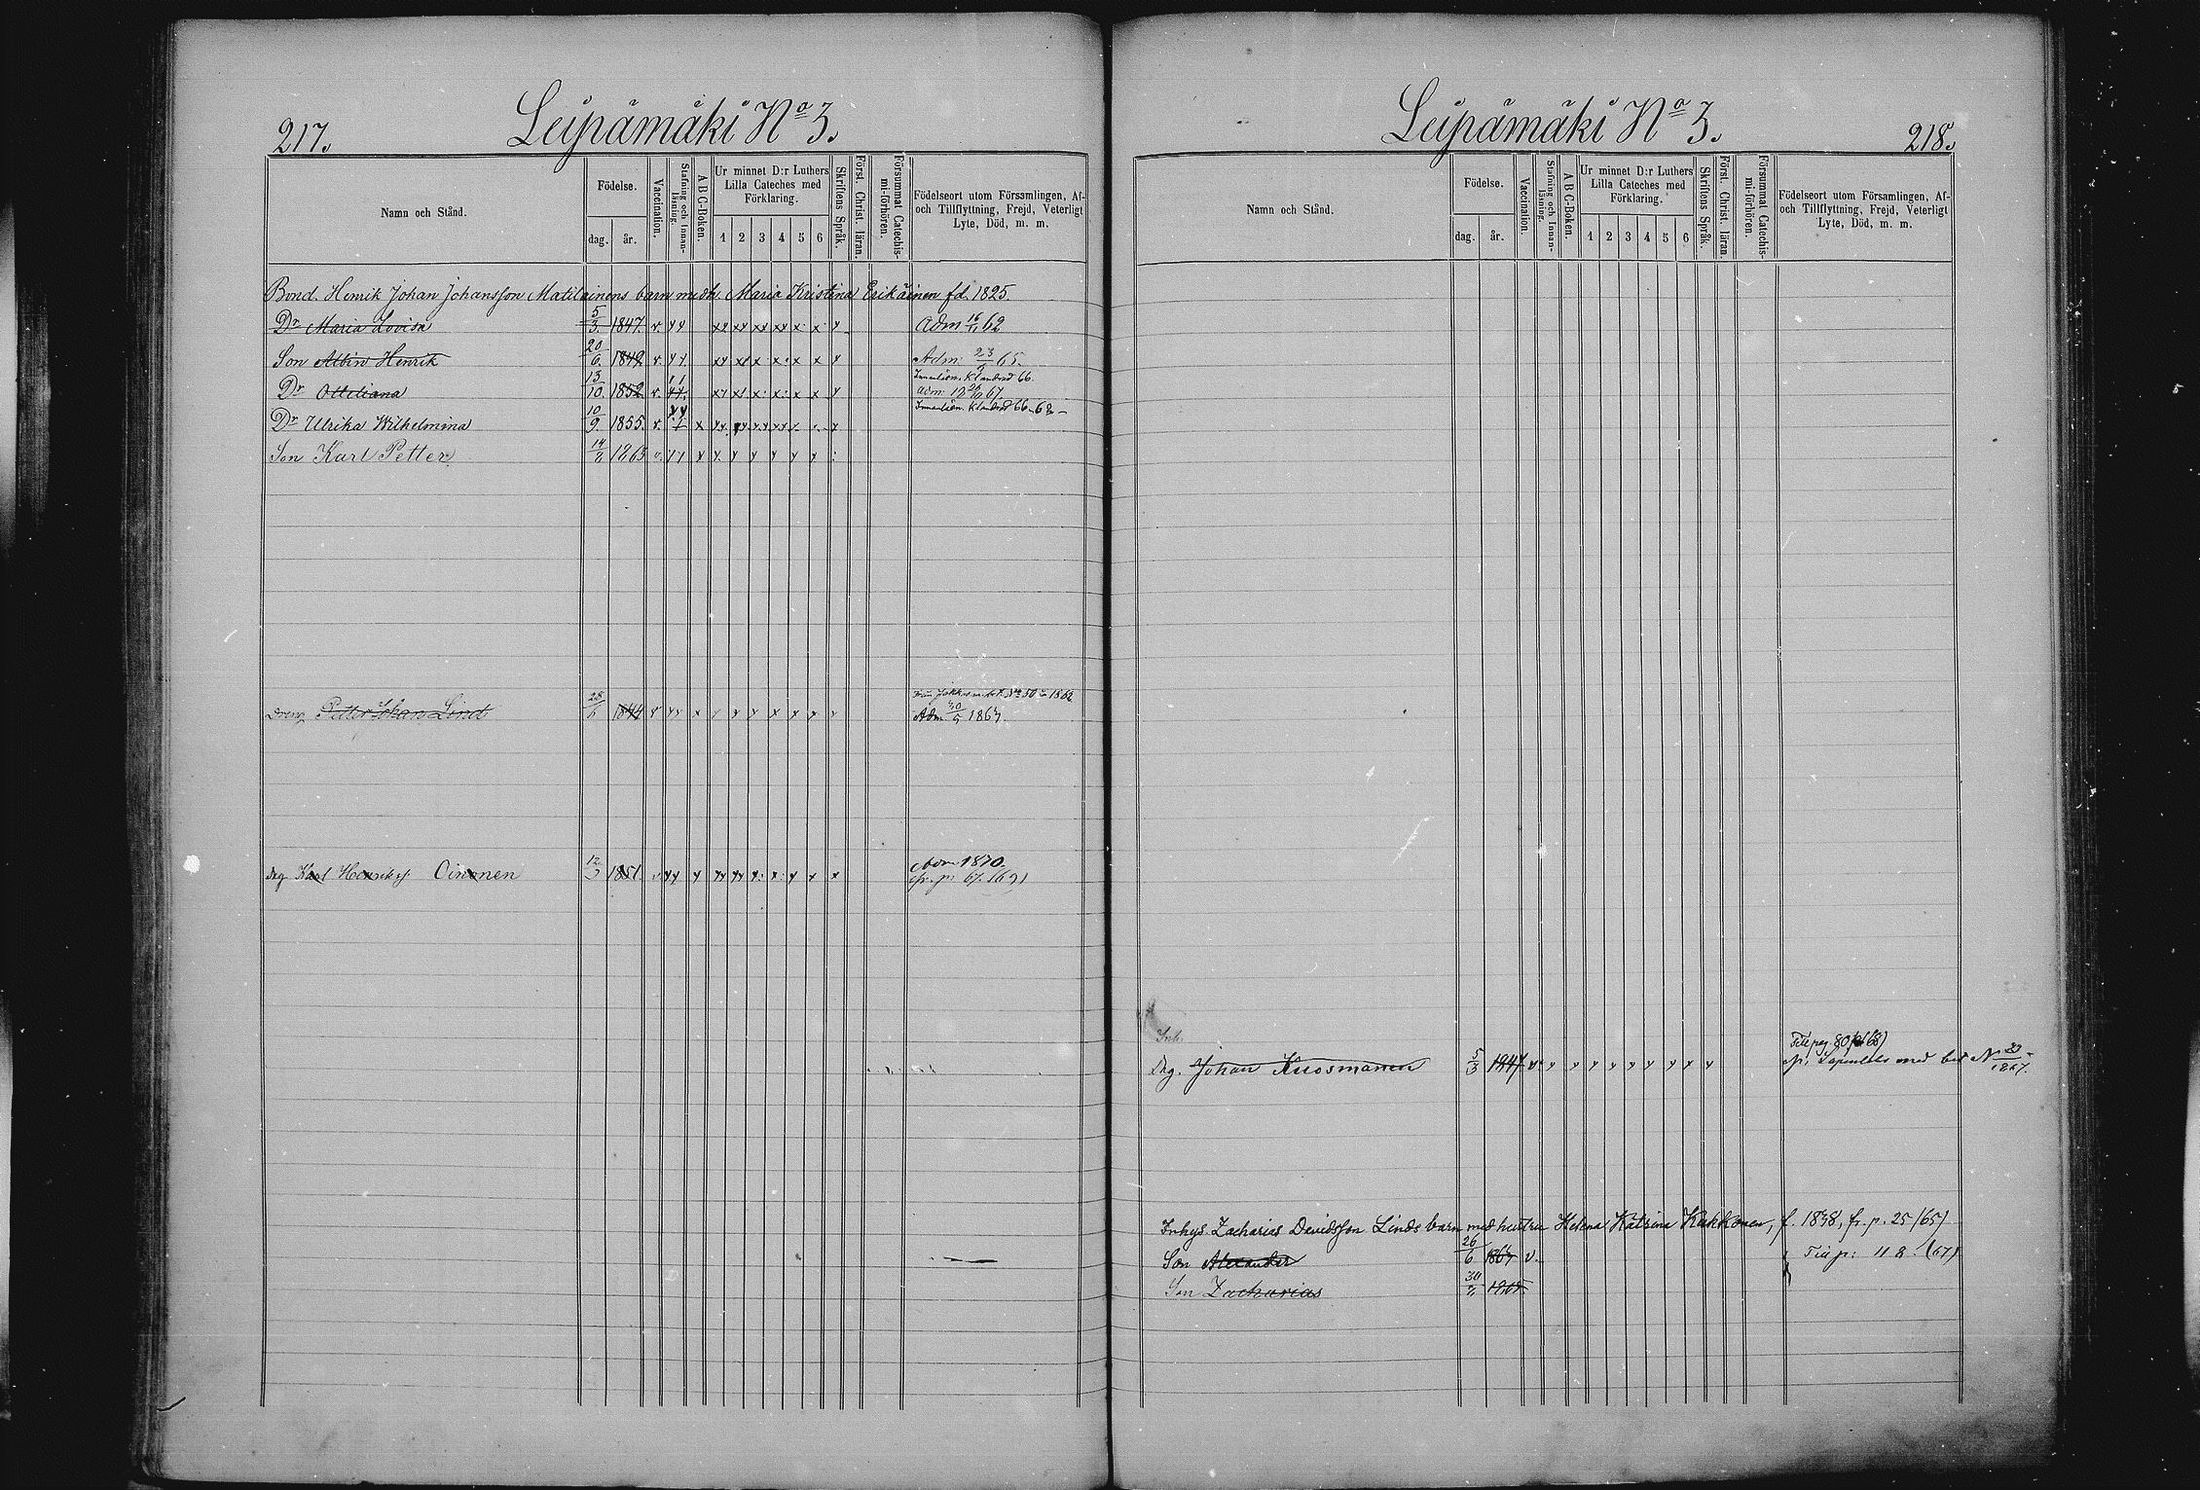 217.
Leipämäki No 3.
Namn och Stånd.
Födelse.
dag.
år.
Vaccination.
Stafning och Innan-läsning.
A B C-Boken.
Ur minnet D:r Luthers
Lilla Cateches med
Förklaring.
1 2 3 4 5 6
Skriftens Språk.
Först. Christ. läran.
Försummat Catechis-mi-förhören.
Födelseort utom Församlingen, Af-
och Tillflyttning, Frejd, Veterligt
Lyte, Död, m. m.
Bond. Henrik Johan Johansson Matilainens barn med h. Maria Kristina Erikäinen fd. 1825.
Dr Maria Lovisa 5/3 1847. Adm 62
Son Albin Henrik 20/6 1849 Adm: 23 65.
Dr Ottiliana 13/10. 1852 66. Adm: 67.
Dr Ulrika Wilhelmina 10/9. 1855. 66-68-
Son Karl Petter 1863
Dreng Petter Johan Lind 1844 No 50 1862
Adm 30/5 1867.
Drg Karl Henriks Oinonen 12/3 1851. Adm 1870.
fr. p. 67. (69)
Leipämäki No 3.
218.
Namn och Stånd.
Födelse.
dag.
år.
Vaccination.
Stafning och Innan-läsning.
A B C-Boken.
Ur minnet D:r Luthers
Lilla Cateches med
Förklaring.
1 2 3 4 5 6
Skriftens Språk.
Först. Christ. läran.
Försummat Catechis-mi-förhören.
Födelseort utom Församlingen, Af-
och Tillflyttning, Frejd, Veterligt
Lyte, Död, m. m.
Inh.
Till pag 80 (68)
Drg. Johan Kuosmanen 5/3 1847 med bet No
Inhys. Zacharias Davidsson Linds barn med hustru Helena Katrina Kukkonen, f. 1838, fr. p. 25 (65)
Son Alexander 26/6 v. Till p: 118 (67)
Son Zacharias 30